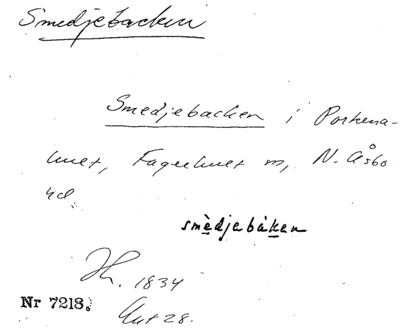 Smedjebacken
Smedjebacken i Porkena-
huset, Fagerhuset m, N. Åsbo
hd.
smèdjebàken
H. 1834
Nr 7218.
Ant 28.